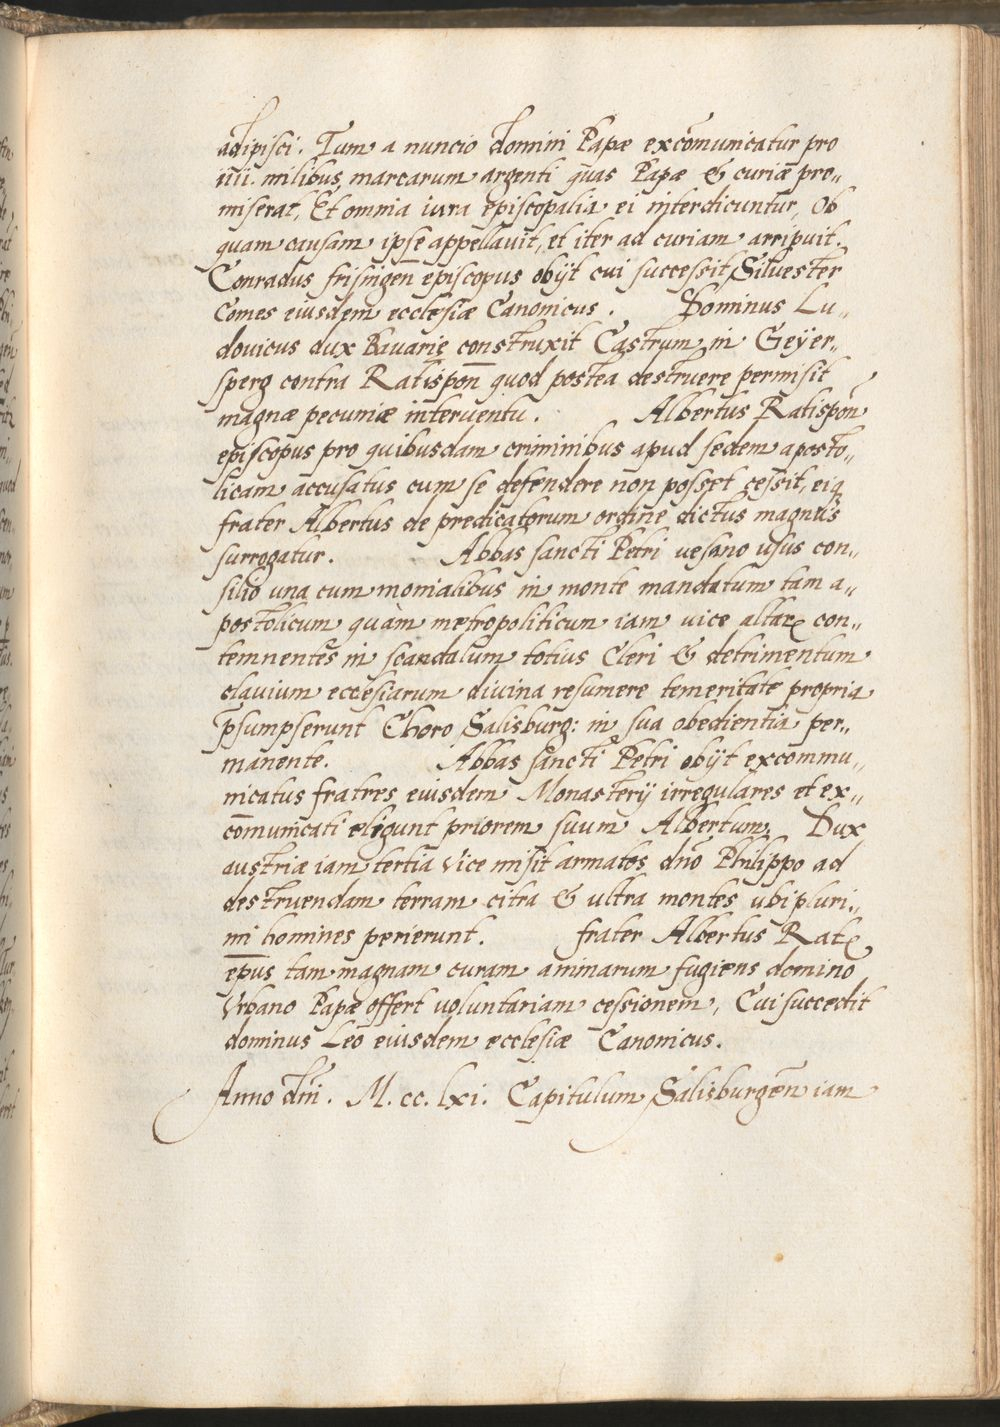 adipisci. Tum a nuncio domini Papæ excōmunicatur pro
iiii. milibus marcarum argenti quas Papæ & curiæ pro„
miserat, Et omnia iura episcopalia ei interdicuntur, Ob
quam causam ipse appellavit, et iter ad curiam arripuit.
Conradus frisingen̄ episcopus obijt cui successit Siluester
Comes eiusdem ecclesiæ Canonicus. Dominus Lu„
douicus dux Bauarie construxit Castrum in Geÿer„
sperg contra Ratispon̄ quod postea destruere permisit
magnæ pecuniæ interuentu. Albertus Ratispon̄
episcopus pro quibusdam criminibus apud sedem aposto„
licam accusatus cum se defendere non posset cessit, eiq
frater Albertus de predicatorum ordine dictus magnus
surrogatur. Abbas sancti Petri uesano usus con„
silio una cum monialibus in monte mandatum tam a„
postolicum quàm metropoliticum iam uice altara con„
temnentes in scandalum totius Cleri & detrimentum
clauium ecclesiarum diuina resumere temeritate propria
p̄sumpserunt Choro Salisburg: in sua obedientia per„
manente. Abbas sancti Petri obijt excommu„
nicatus fratres eiusdem Monasterij irregulares et ex„
cōmunicati eligunt priorem suum Albertum. Dux
austriæ iam tertia vice misit armatos dn̄o Philippo ad
destruendam terram citra & ultra montes ubi pluri„
mi homines perierunt. frater Albertus Rat
ep̄us tam magnam curam animarum fugiens domino
Vrbano Papæ offert uoluntariam cessionem, Cui succedit
dominus Leo eiusdem ecclesiæ Canonicus.
Anno dn̄i. M. cc. lxi. Capitulum Salisburgen̄ iam